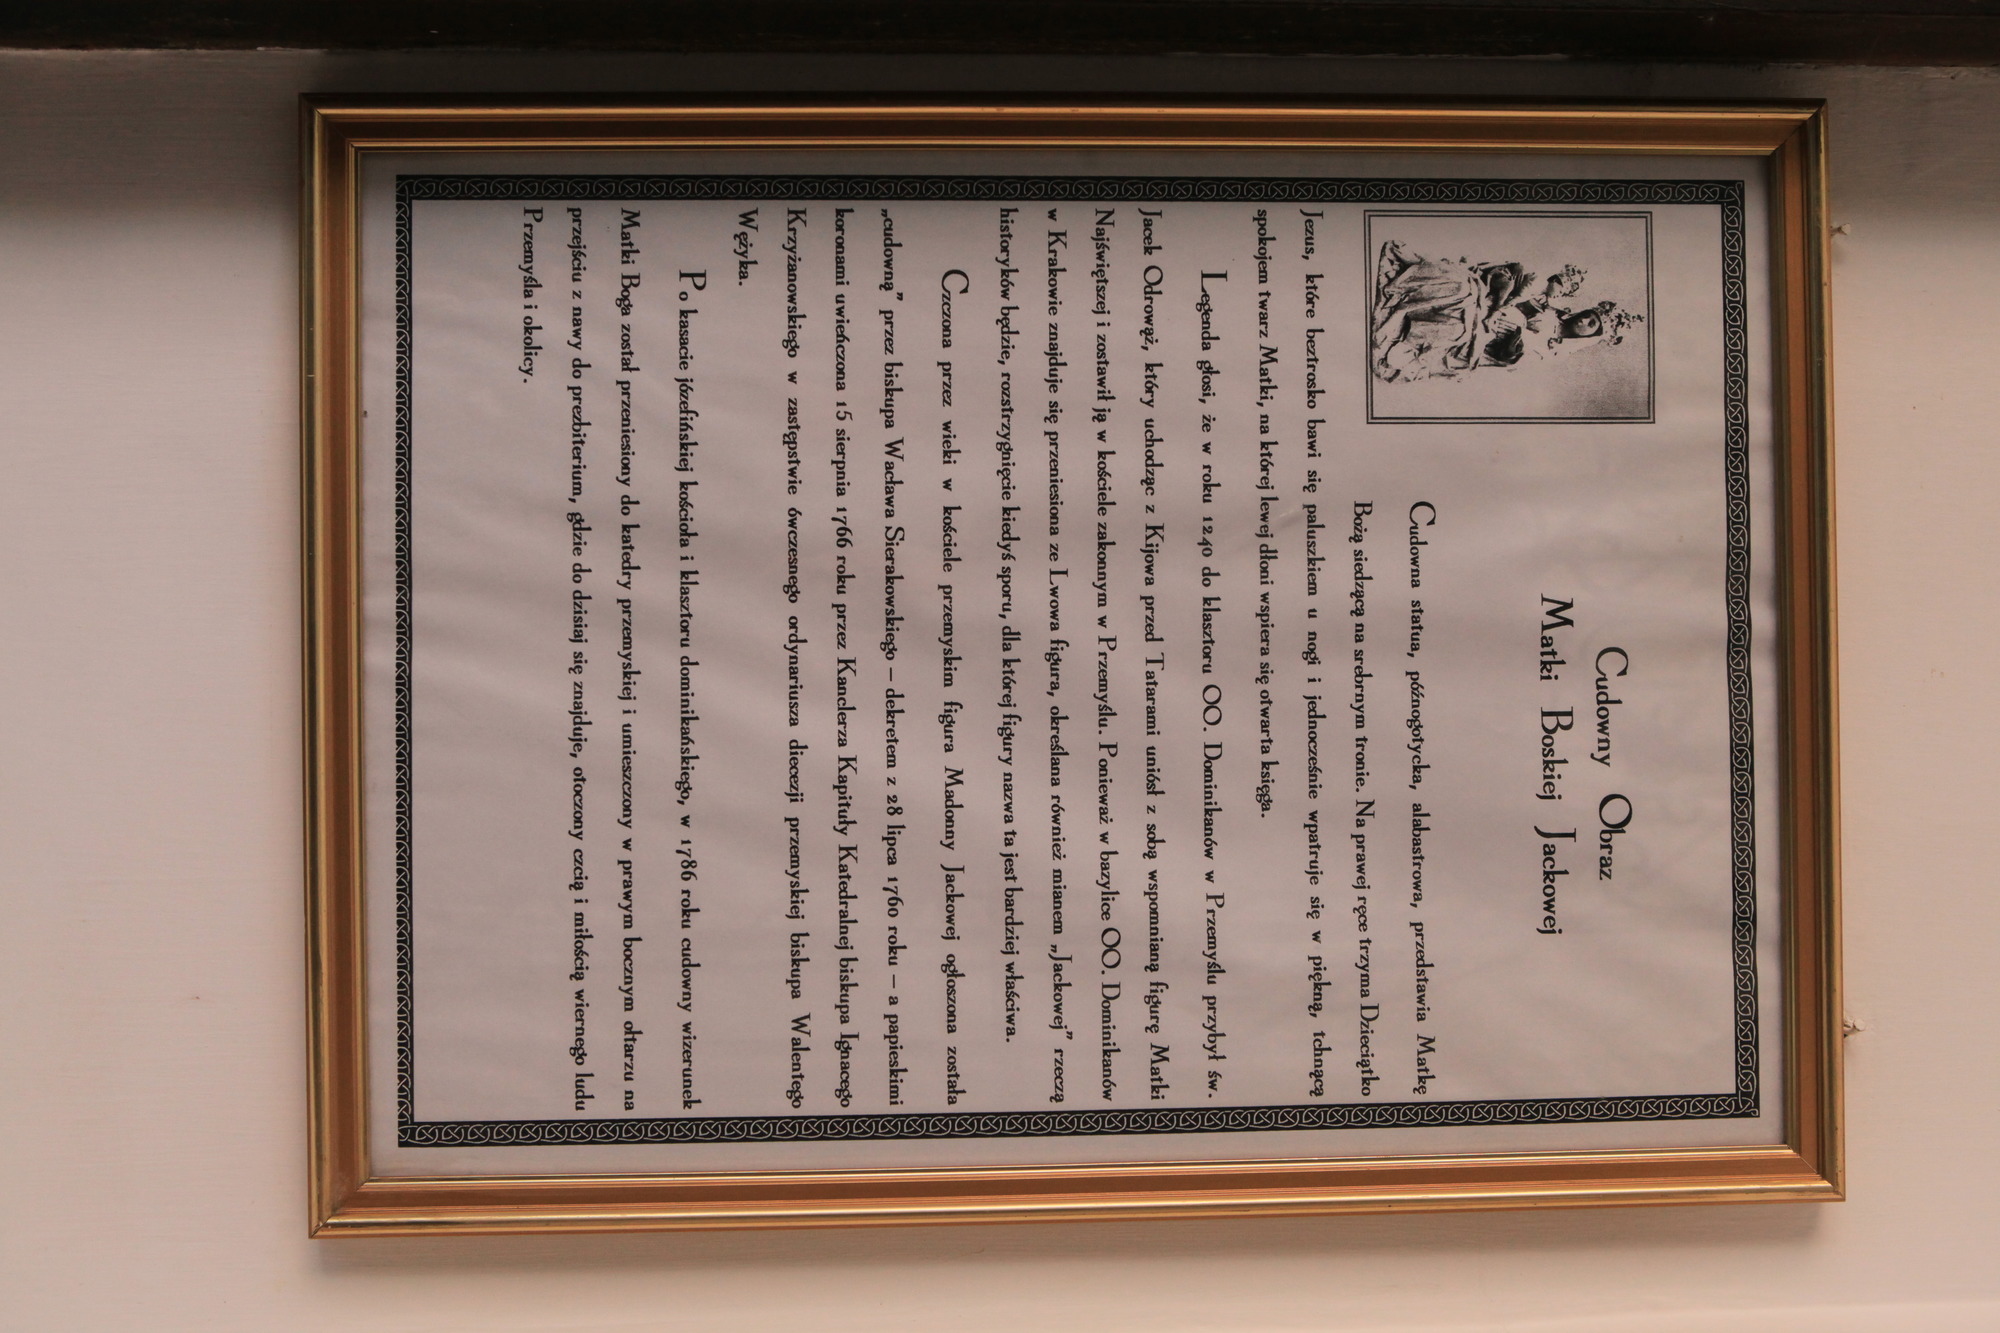 Cudowny Obraz
Matki Boskiej Jackowej
Cudowna statua, późnogotycka, alabastrowa, przedstawia Matkę
Bożą siedzącą na srebrnym tronie. Na prawej ręce trzyma Dzieciątko
Jezus, które beztrosko bawi się paluszkiem u nogi i jednocześnie wpatruje się w piękną, tchnącą
spokojem twarz Matki, na której lewej dłoni wspiera się otwarta księga.
Legenda głosi, że w roku 1240 do klasztoru OO. Dominikanów w Przemyślu przybył św.
Jacek Odrowąż, który uchodząc z Kijowa przed Tatarami uniósł z sobą wspomnianą figurę Matki
Najświętszej i zostawił ją w kościele zakonnym w Przemyślu. Ponieważ w bazylice OO. Dominikanów
w Krakowie znajduje się przeniesiona ze Lwowa figura, określana również mianem „Jackowej” rzeczą
historyków będzie, rozstrzygnięcie kiedyś sporu, dla której figury nazwa ta jest bardziej właściwa.
Czczona przez wieki w kościele przemyskim figura Madonny Jackowej ogłoszona została
„cudowną” przez biskupa Wacława Sierakowskiego – dekretem z 28 lipca 1760 roku – a papieskimi
koronami uwieńczona 15 sierpnia 1766 roku przez Kanclerza Kapituły Katedralnej biskupa Ignacego
Krzyżanowskiego w zastępstwie ówczesnego ordynariusza diecezji przemyskiej biskupa Walentego
Wężyka.
Po kasacie józefińskiej kościoła i klasztoru dominikańskiego, w 1786 roku cudowny wizerunek
Matki Boga został przeniesiony do katedry przemyskiej i umieszczony w prawym bocznym ołtarzu na
przejściu z nawy do prezbiterium, gdzie do dzisiaj się znajduje, otoczony czcią i miłością wiernego ludu
Przemyśla i okolicy.